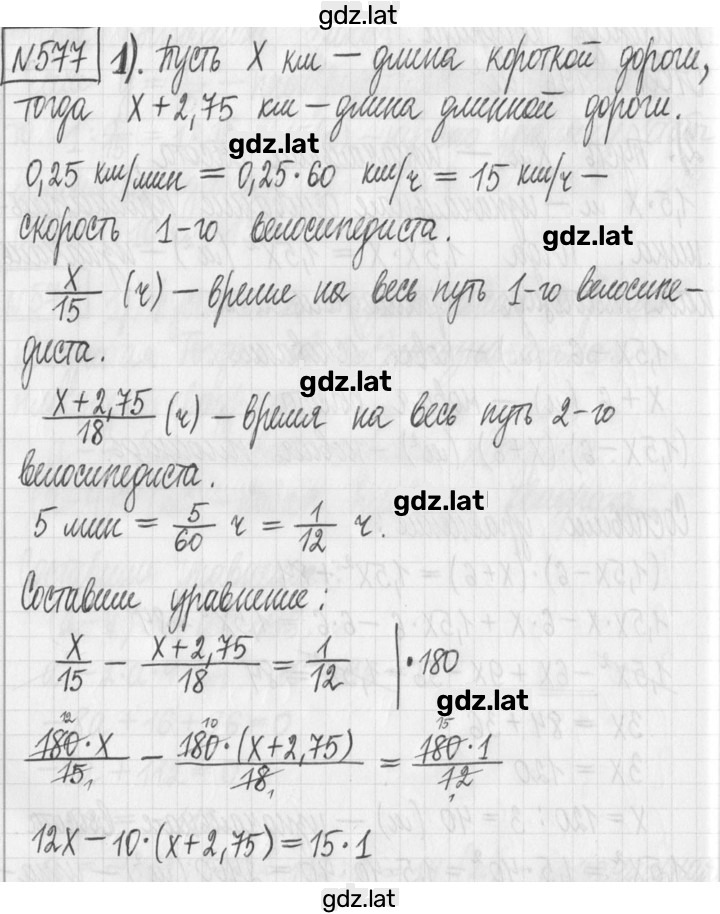 gdz.lat
№577 1). Пусть x км – длина короткой дороги,
тогда x + 2,75 км – длина длинной дороги.
gdz.lat
0,25 км/мин = 0,25 · 60 км/ч = 15 км/ч –
скорость 1-го велосипедиста.
gdz.lat
x/15 (ч) – время на весь путь 1-го велосипе-
диста.
gdz.lat
x+2,75/18 (ч) – время на весь путь 2-го
велосипедиста.
gdz.lat
5 мин = 5/60 ч = 1/12 ч.
Составим уравнение:
x/15 – x+2,75/18 = 1/12 | · 180
gdz.lat
12 10 15
180 · x/15 – 180 · (x+2,75)/18 = 180 · 1/12
1 1 1
12x – 10 · (x + 2,75) = 15 · 1
gdz.lat